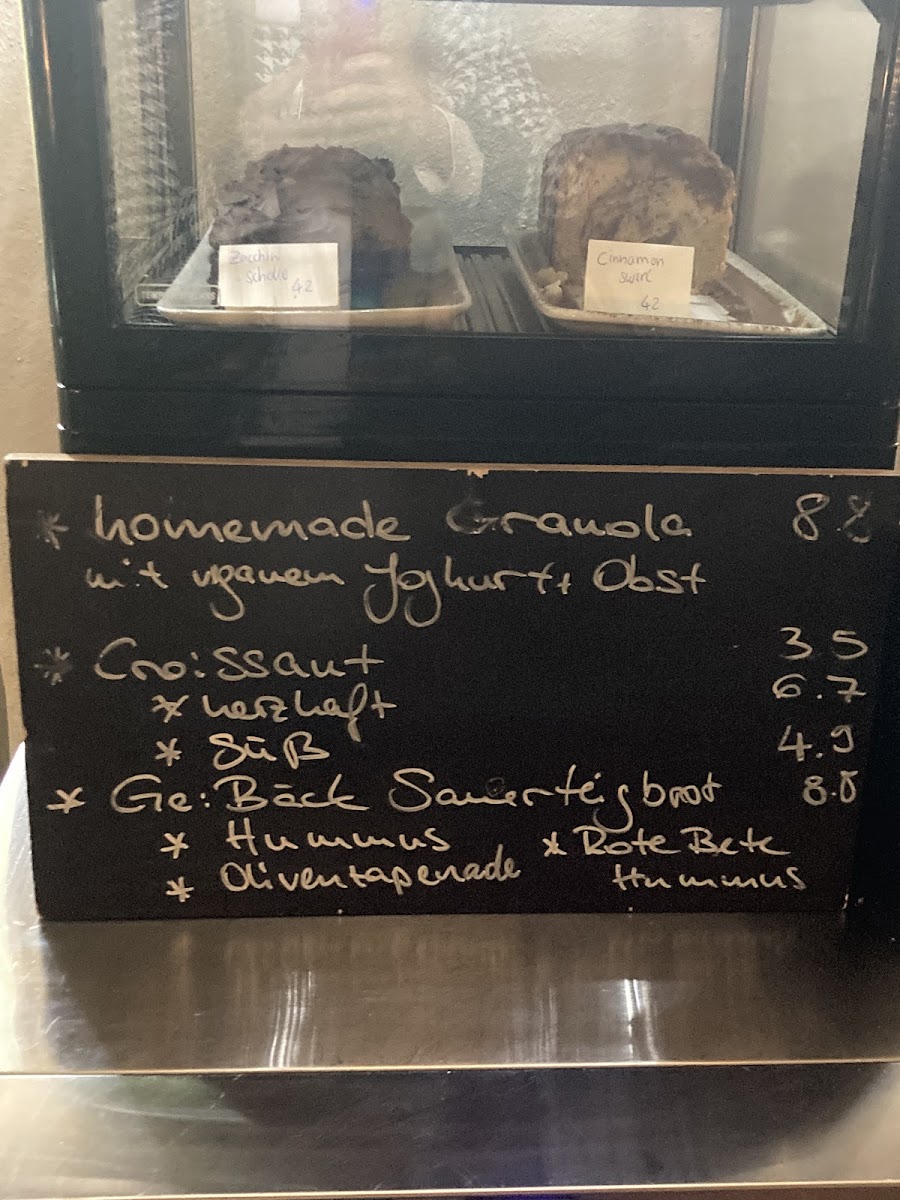 Zucchini
scholo
42
Cinnamon
swirl
42
* homemade Granola 8.8
mit veganem Joghurt + Obst
* Croissant 3.5
* herzhaft 6.7
* Süß 4.9
* Ge:Bäck Sauerteigbrot 8.8
* Hummus * Rote Bete
* Oliventapenade Hummus